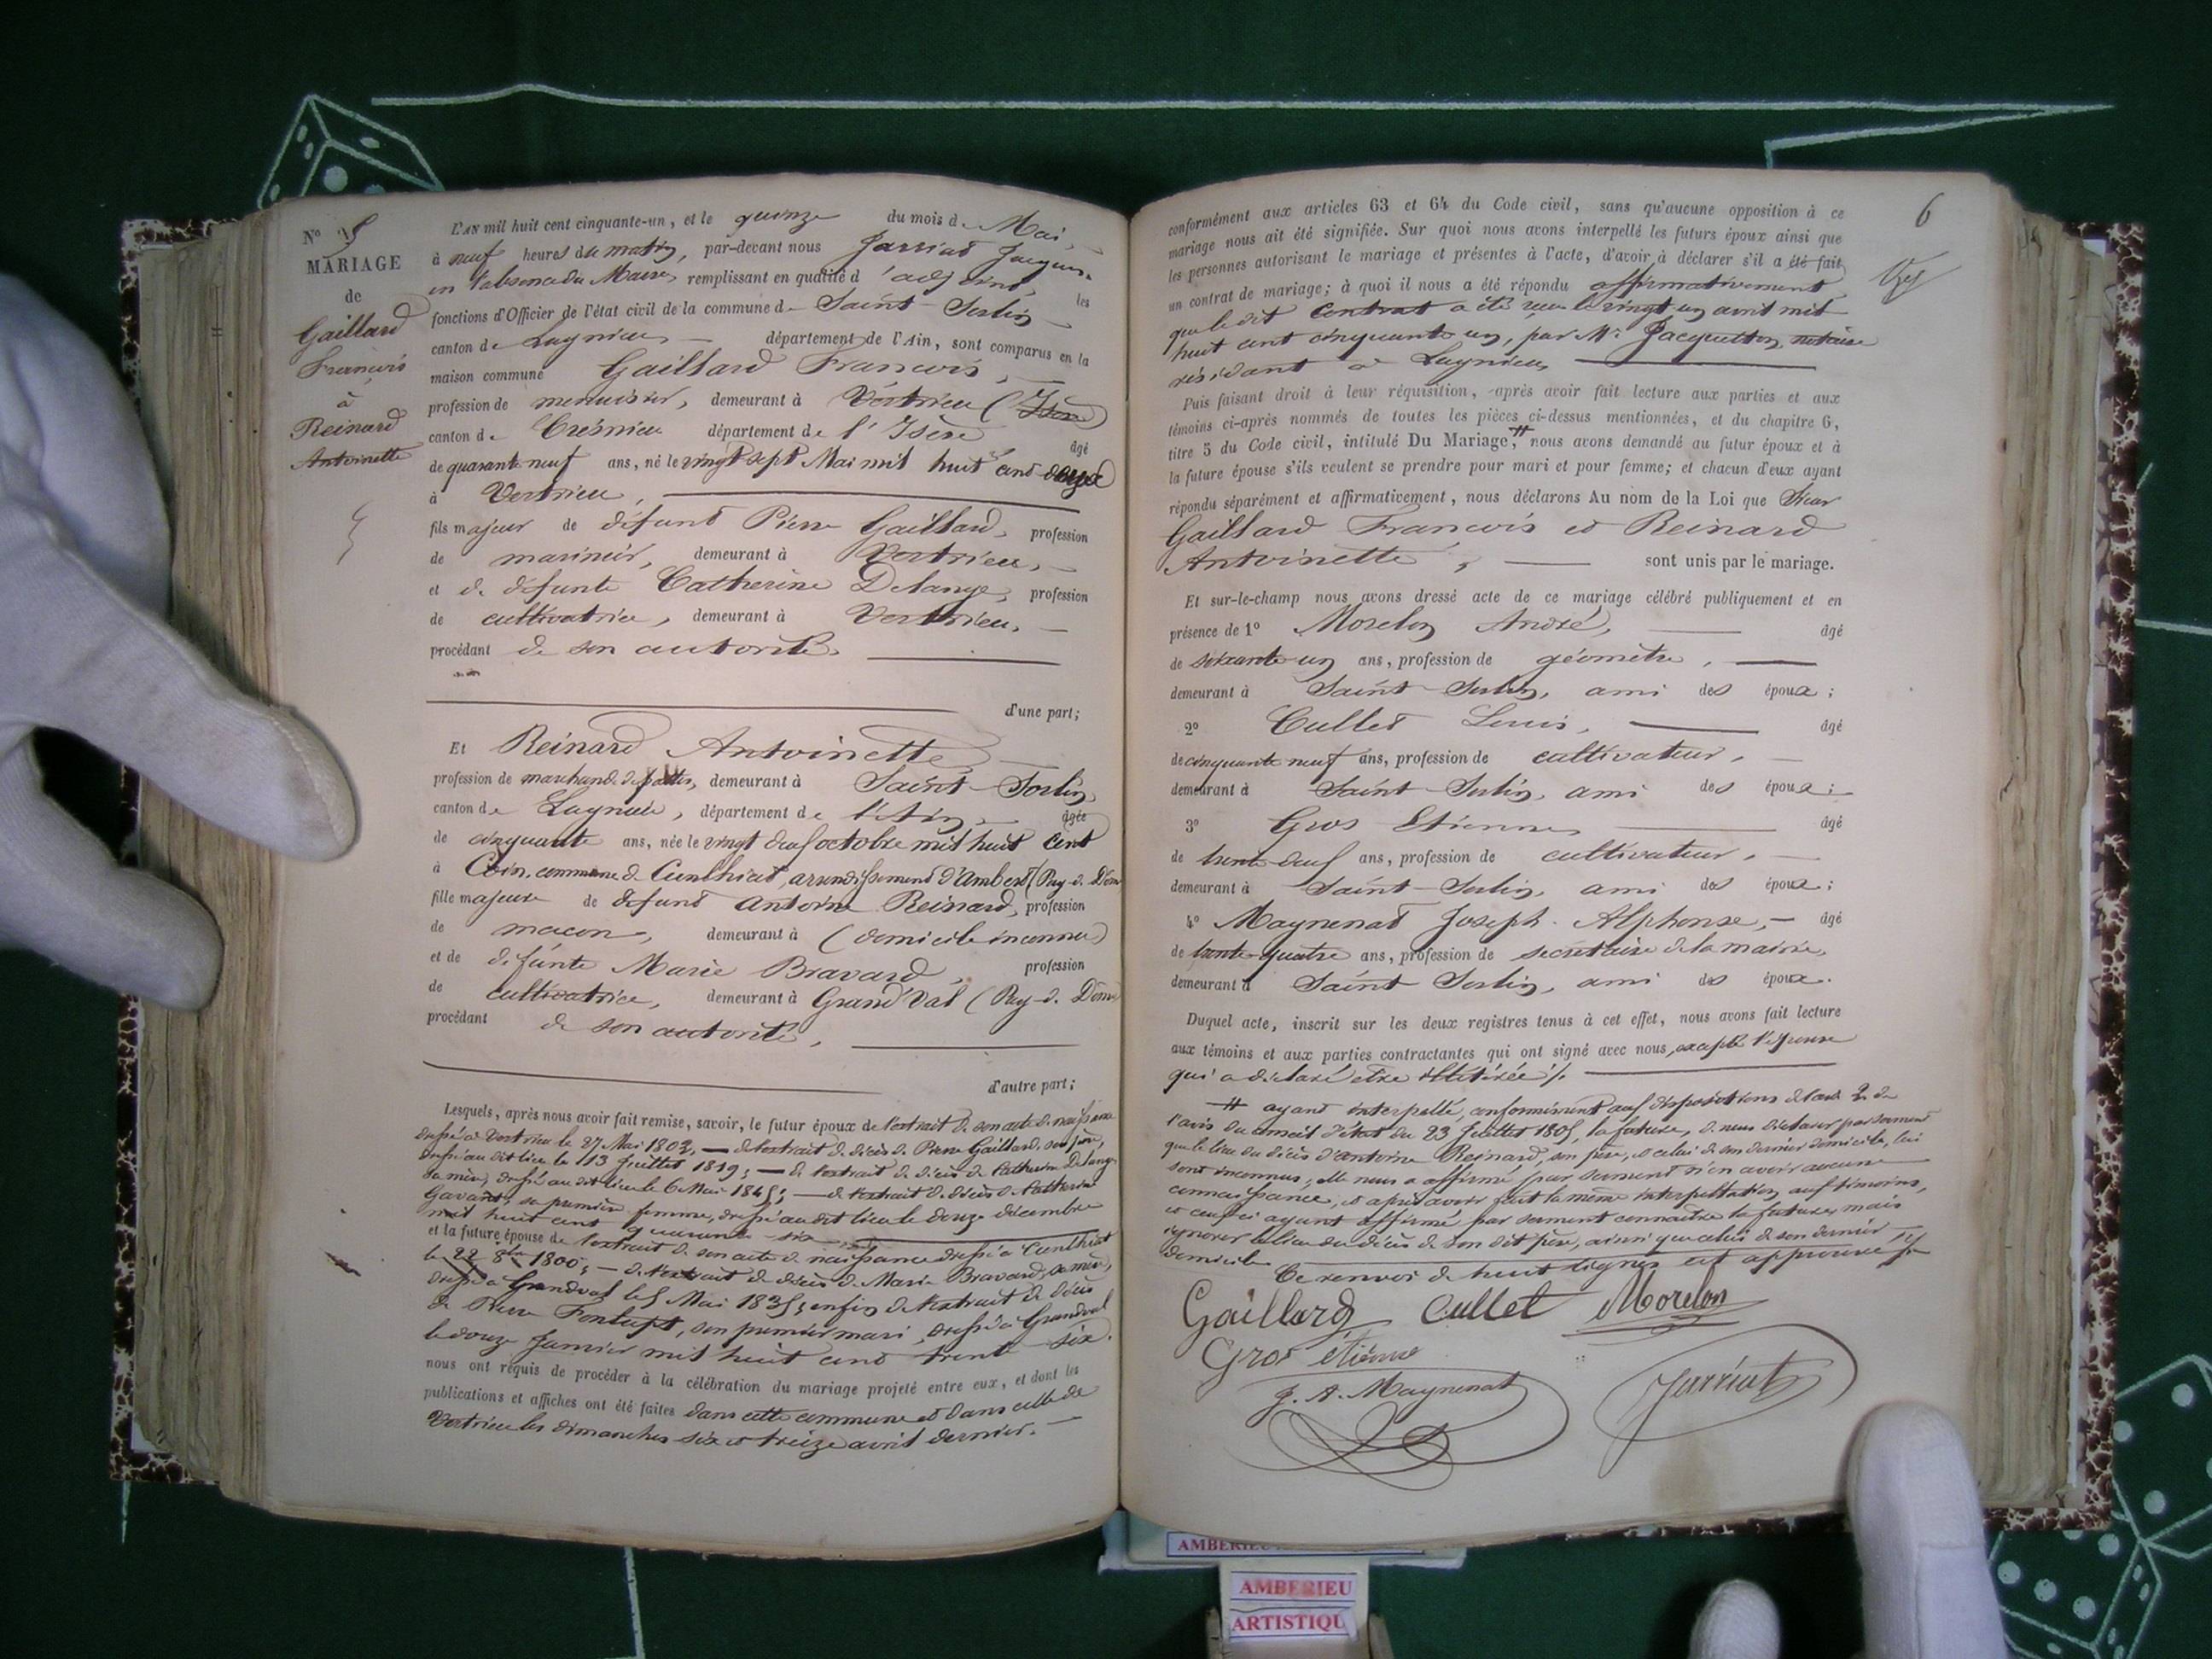 N° 5
MARIAGE
de
Gaillard
François
à
Reinard
Antoinette
L'AN mil huit cent cinquante-un, et le quinze du mois de Mai,
à neuf heures du matin, par-devant nous Jarriat Jacques
en l'absence du Maire, remplissant en qualité d'adjoint les
fonctions d'Officier de l'état civil de la commune de Saint-Sorlin
canton de Lagnieu département de l'Ain, sont comparus en la
maison commune Gaillard François,
profession de menuisier, demeurant à Vertrieu (Isère)
canton de Crémieu département de l'Isère âgé
de quarante neuf ans, né le vingt sept Mai mil huit cent deux
à Vertrieu,
fils majeur de défunt Pierre Gaillard, profession
de marinier, demeurant à Vertrieu,
et de défunte Catherine Delange, profession
de cultivatrice, demeurant à Vertrieu,
procédant de son autorité,
d'une part;
Et Reinard Antoinette
profession de marchande de, demeurant à Saint-Sorlin,
canton de Lagnieu, département de l'Ain, âgée
de cinquante ans, née le vingt deux octobre mil huit cent
à commune de Cunlhiat, arrondissement d'Ambert (Puy-de-Dôme
fille majeure de défunt Antoine Reinard, profession
de maçon, demeurant à (domicile inconnu)
et de défunte Marie Bravard, profession
de cultivatrice, demeurant à Grand'Val (Puy-de-Dôme
procédant de son autorité,
d'autre part;
Lesquels, après nous avoir fait remise, savoir, le futur époux de l'extrait de son acte de naissance
dressé à Vertrieu le 27 Mai 1802, — de l'extrait de décès de Pierre Gaillard, son père,
dressé au dit lieu le 13 Juillet 1819; — de l'extrait de décès de Catherine Delange
sa mère, dressé au dit lieu le 6 Mai 1845; — de l'extrait de décès de Catherine
Gavant, sa première femme, dressé au dit lieu le douze décembre
mil huit cent quarante-six
et la future épouse de l'extrait de son acte de naissance dressé à Cunlhiat
le 22 8bre 1800; — de l'extrait de décès de Marie Bravard, sa mère,
dressé à Grandval le 5 Mai 1835; enfin de l'extrait de décès
de Pierre, son premier mari, dressé à Grandval
le douze Janvier mil huit cent trente-six.
nous ont requis de procéder à la célébration du mariage projeté entre eux, et dont les
publications et affiches ont été faites dans cette commune et dans celle de
Vertrieu les dimanches six et treize avril dernier.
6
conformément aux articles 63 et 64 du Code civil, sans qu'aucune opposition à ce
mariage nous ait été signifiée. Sur quoi nous avons interpellé les futurs époux ainsi que
les personnes autorisant le mariage et présentes à l'acte, d'avoir à déclarer s'il a été fait
un contrat de mariage; à quoi il nous a été répondu affirmativement
que le dit contrat a été reçu le vingt un avril mil
huit cent cinquante un, par Me Jacquetton, notaire
résidant à Lagnieu
Puis faisant droit à leur réquisition, après avoir fait lecture aux parties et aux
témoins ci-après nommés de toutes les pièces ci-dessus mentionnées, et du chapitre 6,
titre 5 du Code civil, intitulé Du Mariage, # nous avons demandé au futur époux et à
la future épouse s'ils veulent se prendre pour mari et pour femme; et chacun d'eux ayant
répondu séparément et affirmativement, nous déclarons Au nom de la Loi que Sieur
Gaillard François et Reinard
Antoinette, sont unis par le mariage.
Et sur-le-champ nous avons dressé acte de ce mariage célébré publiquement et en
présence de 1° Morelon André, âgé
de soixante-un ans, profession de géomètre,
demeurant à Saint-Sorlin, ami des époux;
2° Cullet Louis, âgé
de cinquante neuf ans, profession de cultivateur,
demeurant à Saint-Sorlin, ami des époux;
3° Gros Etienne, âgé
de trente-deux ans, profession de cultivateur,
demeurant à Saint-Sorlin, ami des époux;
4° Maynenat Joseph-Alphonse, âgé
de trente-quatre ans, profession de secrétaire de la mairie,
demeurant à Saint Sorlin, ami des époux.
Duquel acte, inscrit sur les deux registres tenus à cet effet, nous avons fait lecture
aux témoins et aux parties contractantes qui ont signé avec nous, excepté l'épouse
qui a déclaré être illitérée /.
# ayant interpellé, conformément aux dispositions de l'art. 2 de
l'avis du conseil d'état du 23 Juillet 1805, la future, de nous déclarer par serment
que le lieu du décès d'Antoine Reinard, son père, et celui de son dernier domicile, lui
sont inconnus; elle nous a affirmé par serment n'en avoir aucune
connaissance, et après avoir fait la même interpellation aux témoins,
et ceux-ci ayant affirmé par serment connaître la future, mais
ignorer le lieu du décès de son dit père, ainsi que celui de son dernier
domicile. Ce renvoi de huit lignes est approuvé /.
Gaillard Cullet Morelon
Gros etienne
J. A. Maynenat Jarriat
AMBERIEU
AMBERIEU
ARTISTIQU